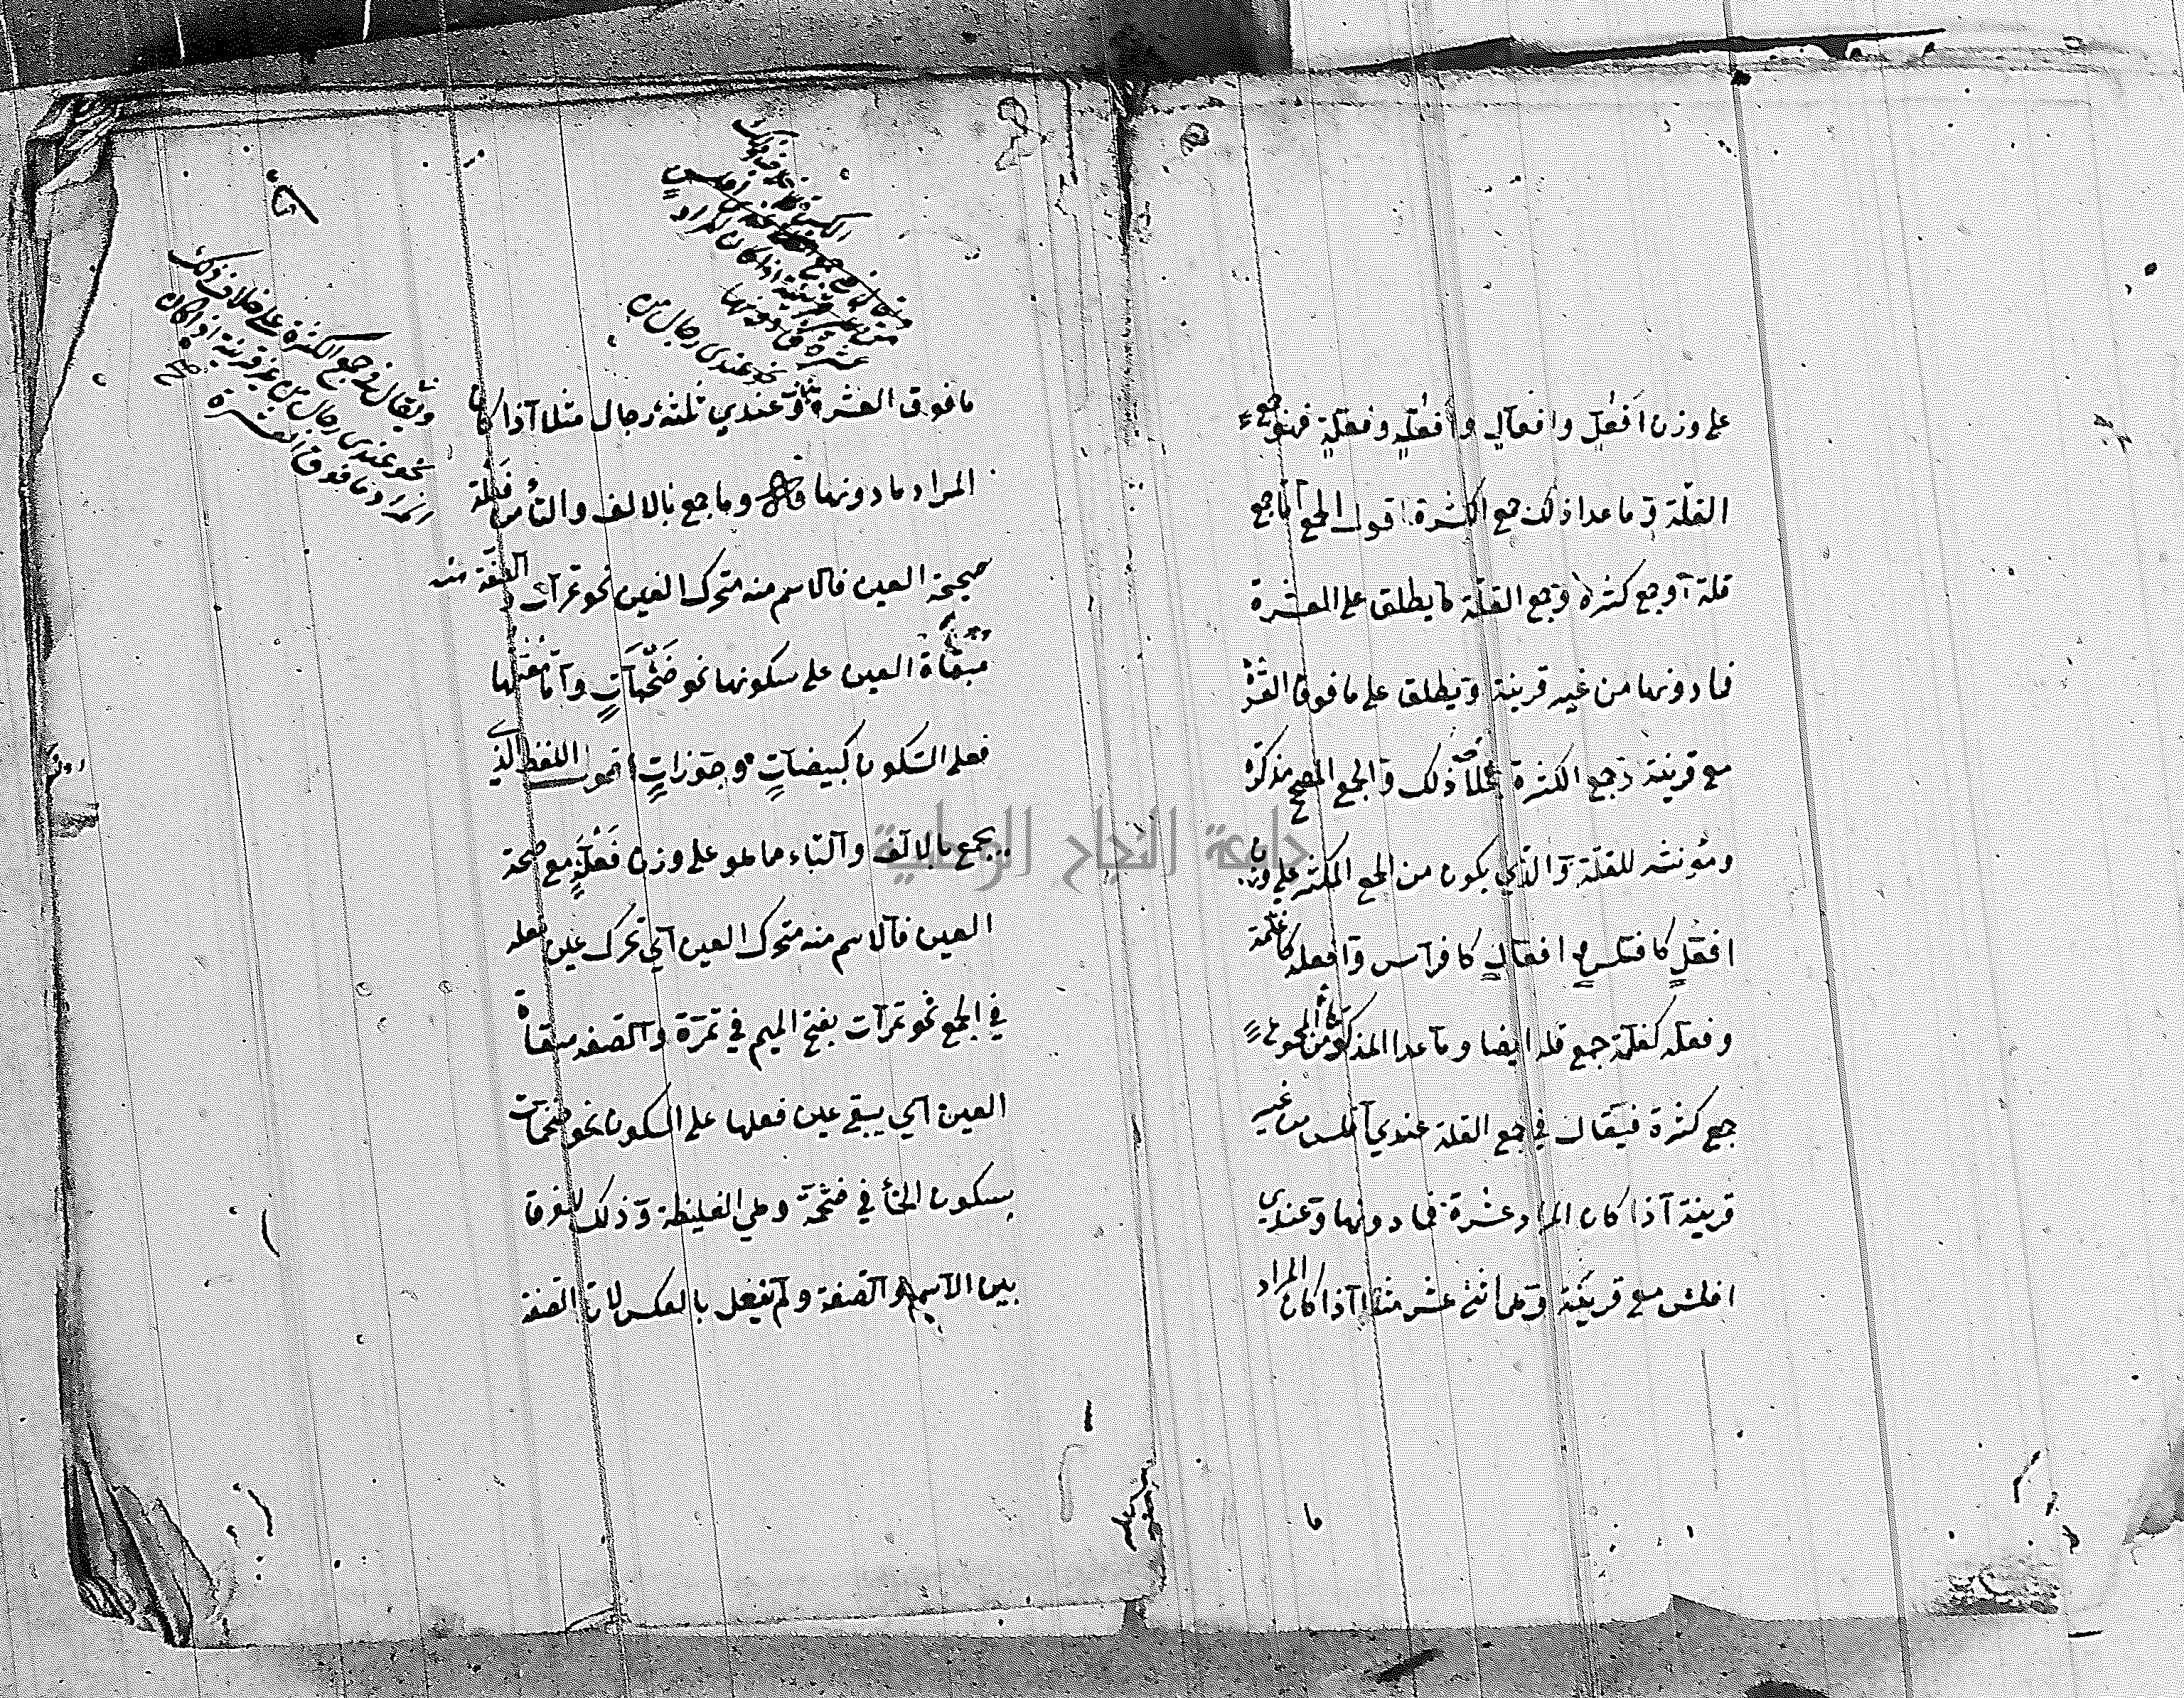 على وزن افعل وافعال وافعلة وفعلة فهو جمع
القلة وما عدا ذلك جمع الكثرة اقول الجمع اما جمع
قلة او جمع كثرة وجمع القلة ما يطلق على العشرة
فما دونها من غير قرينة ويطلق على ما فوق العشرة
مع قرينة وجمع الكثرة عكس ذلك والجمع المصحح مذكره
ومؤنثه للقلة والذي يكون من الجمع المكسر على وزن
افعل كافلس وافعال كافراس وافعلة كاغلمة
وفعلة كغلمة جمع قلة ايضا وما عدا المذكور من الجموع
جمع كثرة فيقال في جمع القلة عندي افلس من غير
قرينة اذا كان المراد عشرة فما دونها وعندي
افلس مع قرينة وهى اثنى عشر مثلا اذا كان المراد
ما فوق العشرة وعندي ثلثة رجال مثلا اذا كان
المراد ما دونها وما جمع بالالف والتاء من فعلة
صحيحة العين فالاسم منه متحرك العين نحو تمرات والصفة منه
مبقاة العين على سكونها نحو ضخمات واما معتلها
فعلى السكون كبيضات وجوزات اقول اللفظ الذي
يجمع بالالف والتاء مما هو على وزن فعلة مع صحة
العين فالاسم منه متحرك العين اي تحرك عين فعله
في الجمع نحو تمرات بفتح الميم في تمرة والصفة مبقاة
العين اي يبقى عين فعلها على السكون نحو ضخمات
بسكون الخاء في ضخمة وهي الغليظة وذلك للفرق
بين الاسم والصفة ولم تفعل بالعكس لان الصفة
ويقال في جمع الكثرة على خلاف ذلك
نحو عندى رجال من غير قرينة اذا كان
المراد ما فوق العشرة
نحو عندى رجال من
عشرة فما دونها
جامعة النجاح الوطنية